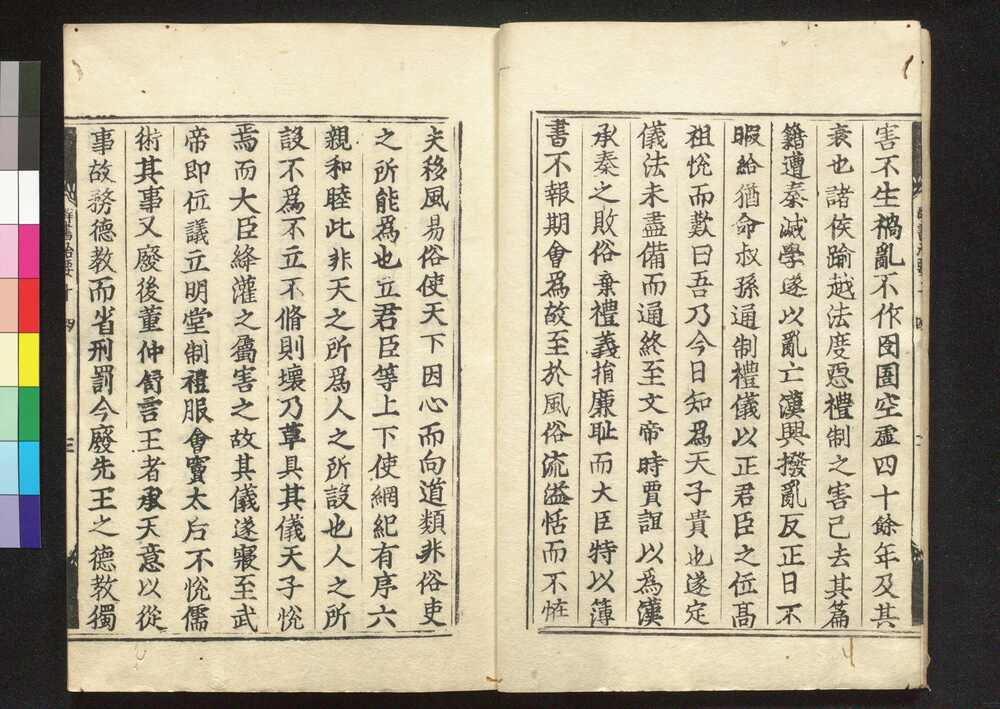 害不生禍亂不作囹圄空虛四十餘年及其
衰也諸侯踰越法度惡禮制之害己去其篇
籍遭秦滅學遂以亂亡漢興撥亂反正日不
暇給猶命叔孫通制禮儀以正君臣之位高
祖悅而歎曰吾乃今日知爲天子貴也遂定
儀法未盡備而通終至文帝時賈誼以爲漢
承秦之敗俗棄禮義捐廉耻而大臣特以簿
書不報期會爲故至於風俗流溢恬而不恠
夫移風易俗使天下因心而向道類非俗吏
之所能爲也立君臣等上下使綱紀有序六
親和睦此非天之所爲人之所設也人之所
設不爲不立不脩則壞乃草具其儀天子悅
焉而大臣絳灌之屬害之故其儀遂寢至武
帝即位議立明堂制禮服會竇太后不悅儒
術其事又廢後董仲舒言王者承天意以從
事故務德教而省刑罰今廢先王之德教獨
群書治要十四
三